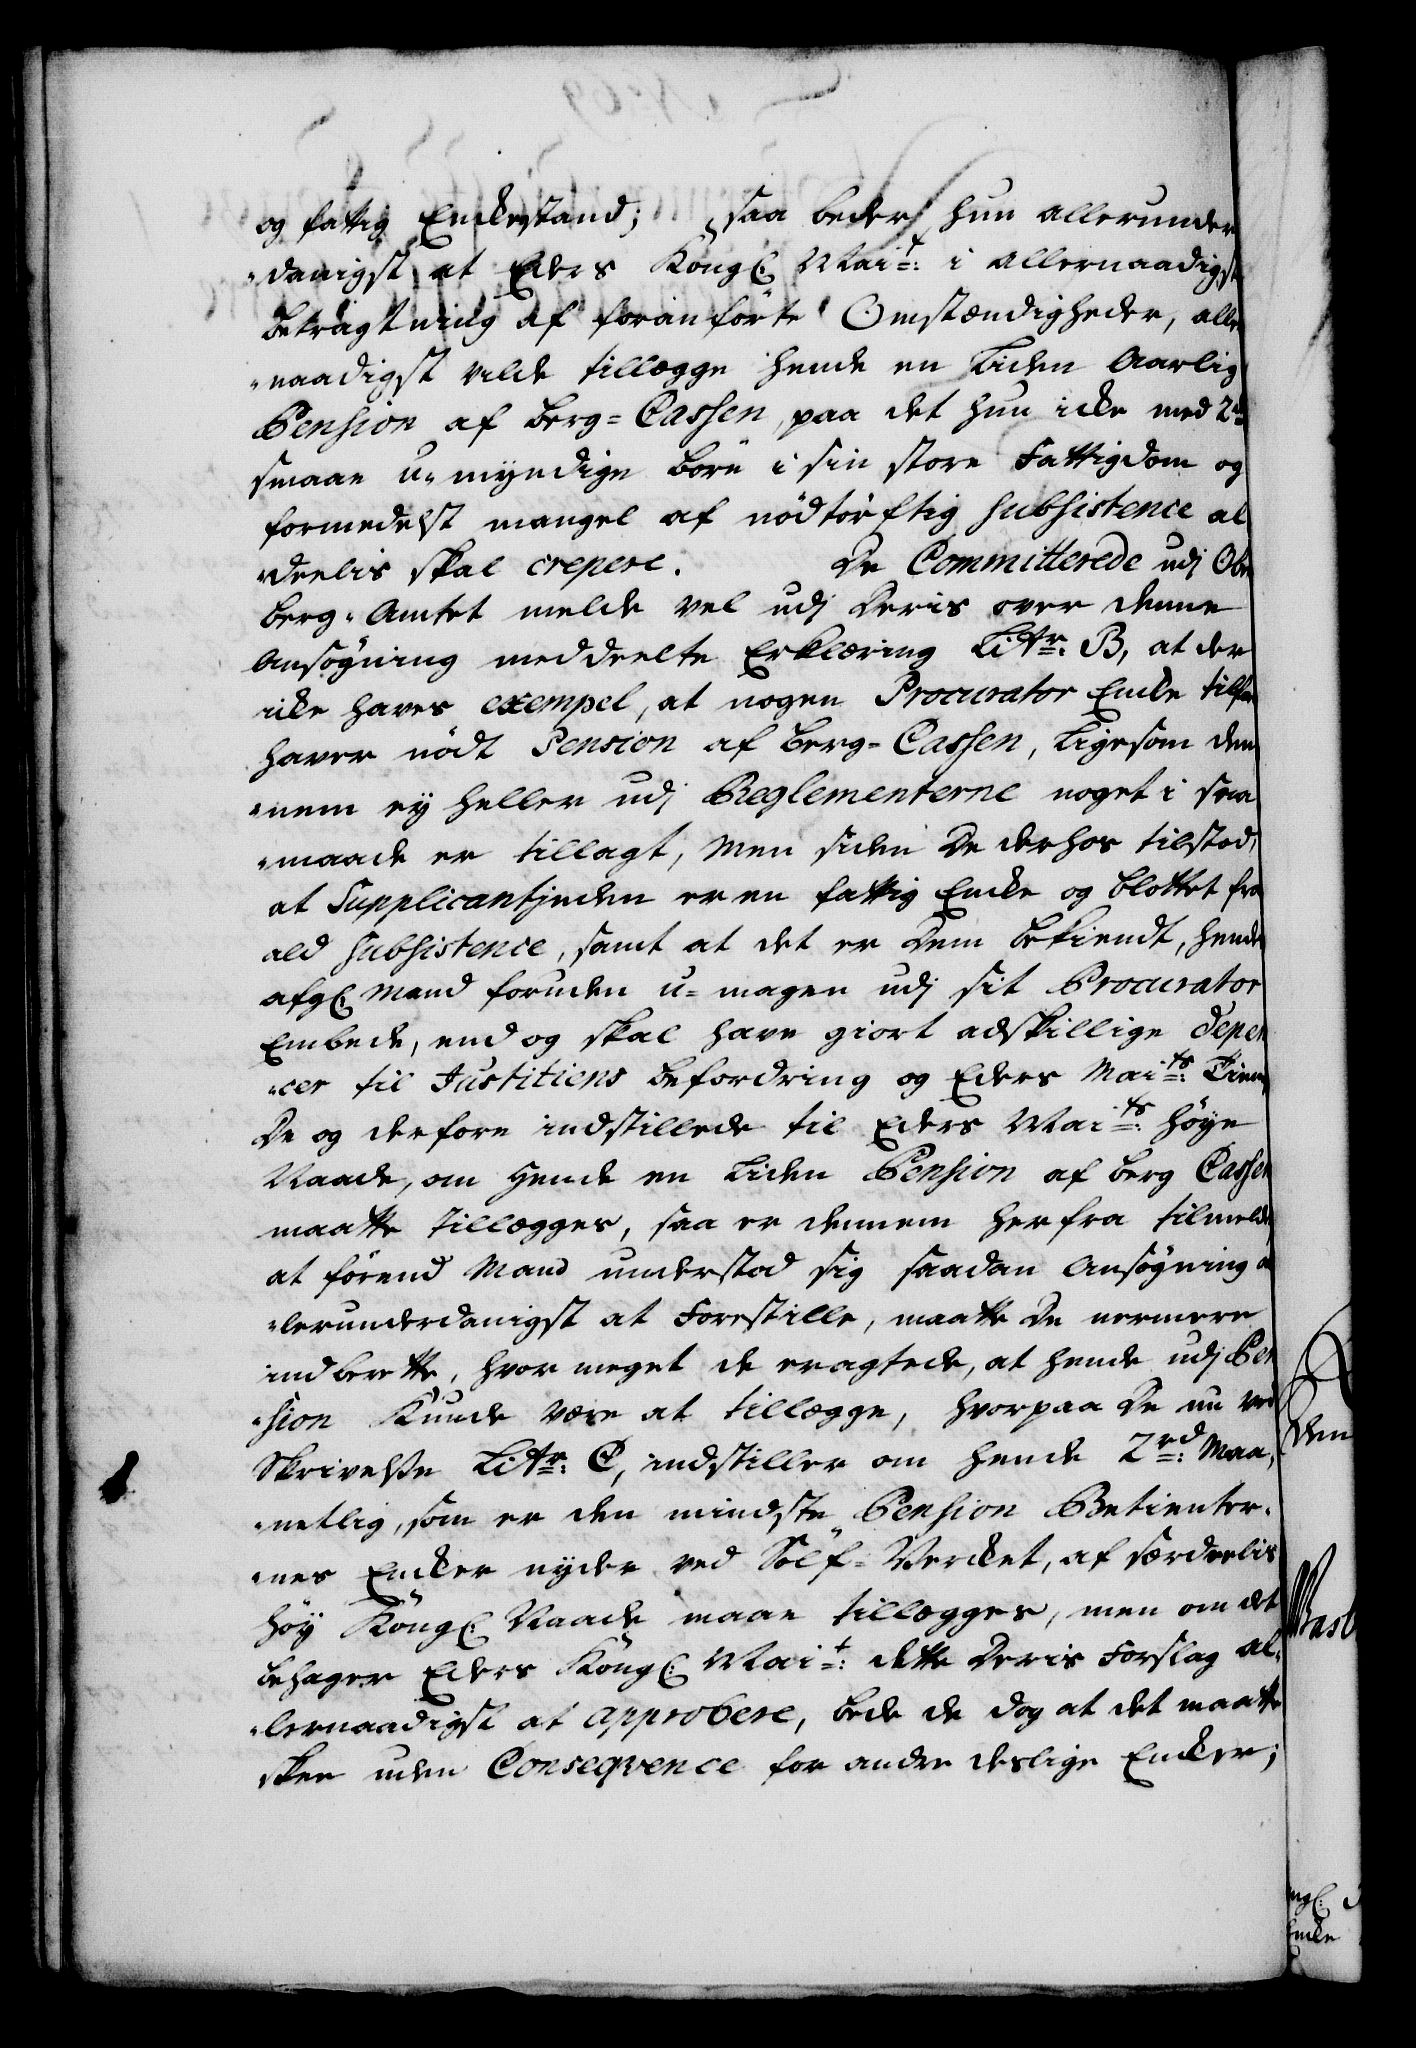 og fattig Enckestand; saa beder hun allerunder
-danigst at Eders Kongl. Mai.t: i allernaadigst
betragtning af foranförte Omstændigheder, aller
-naadigst vilde tillægge hende en Liden Aarlig
Pension af Berg-Cassen, paa det hun icke med 2de
smaae u-myndige Börn i sin store Fattigdom og
formedelst mangel af nödtörftig subsistence al
-deelis skal crepere. De Committerede udj Ober
Berg-Amtet melde vel udj Deris over denne
Ansögning meddeelte Erklæring Litr: B, at der
icke haves exempel, at nogen Procurator Encke tilforn
haver nödt Pension af Berg-Cassen, Ligesom den
-nem ey heller udj Reglementerne noget i saa
-maade er tillagt, Men siden De derhos tilstod,
at Supplicantinden er en fattig Encke og blottet fra
ald subsistence, samt at det er Dem bekiendt, hendes
afgl. Mand foruden u-magen udj sit Procurator
Embede, end og skal have giort adskillige depen
-cer til Justitiens befordring og Eders Mai.ts: Tieneste,
De og derfore indstillede til Eders Mai.ts: höye
Naade, om hende en Liden Pension af Berg Cassen
maatte tillægges, saa er dennem herfra tilmeldt,
at förend Mand understod sig saadan Ansögning al
-lerunderdanigst at Forestille, maatte De nermere
indberette, hvor meget de eragtede, at hende udj Pen
-sion Kunde være at tillægge, hvorpaa De nu ved
Skrivelse Litr: C, indstiller om hende 2 rd: Maa-
-netlig, som er den mindste Pension Betienter-
-nes Encker nyder ved Sölf-Vercket, af særdeelis
höy Kongl. Naade maae tillægges, men om det
behager Eders Kongl: Mai.t: dette Deris Forslag al-
-lernaadigst at approbere, bede de dog at det maatte
skee uden Conseqvence for andre deslige Encker;